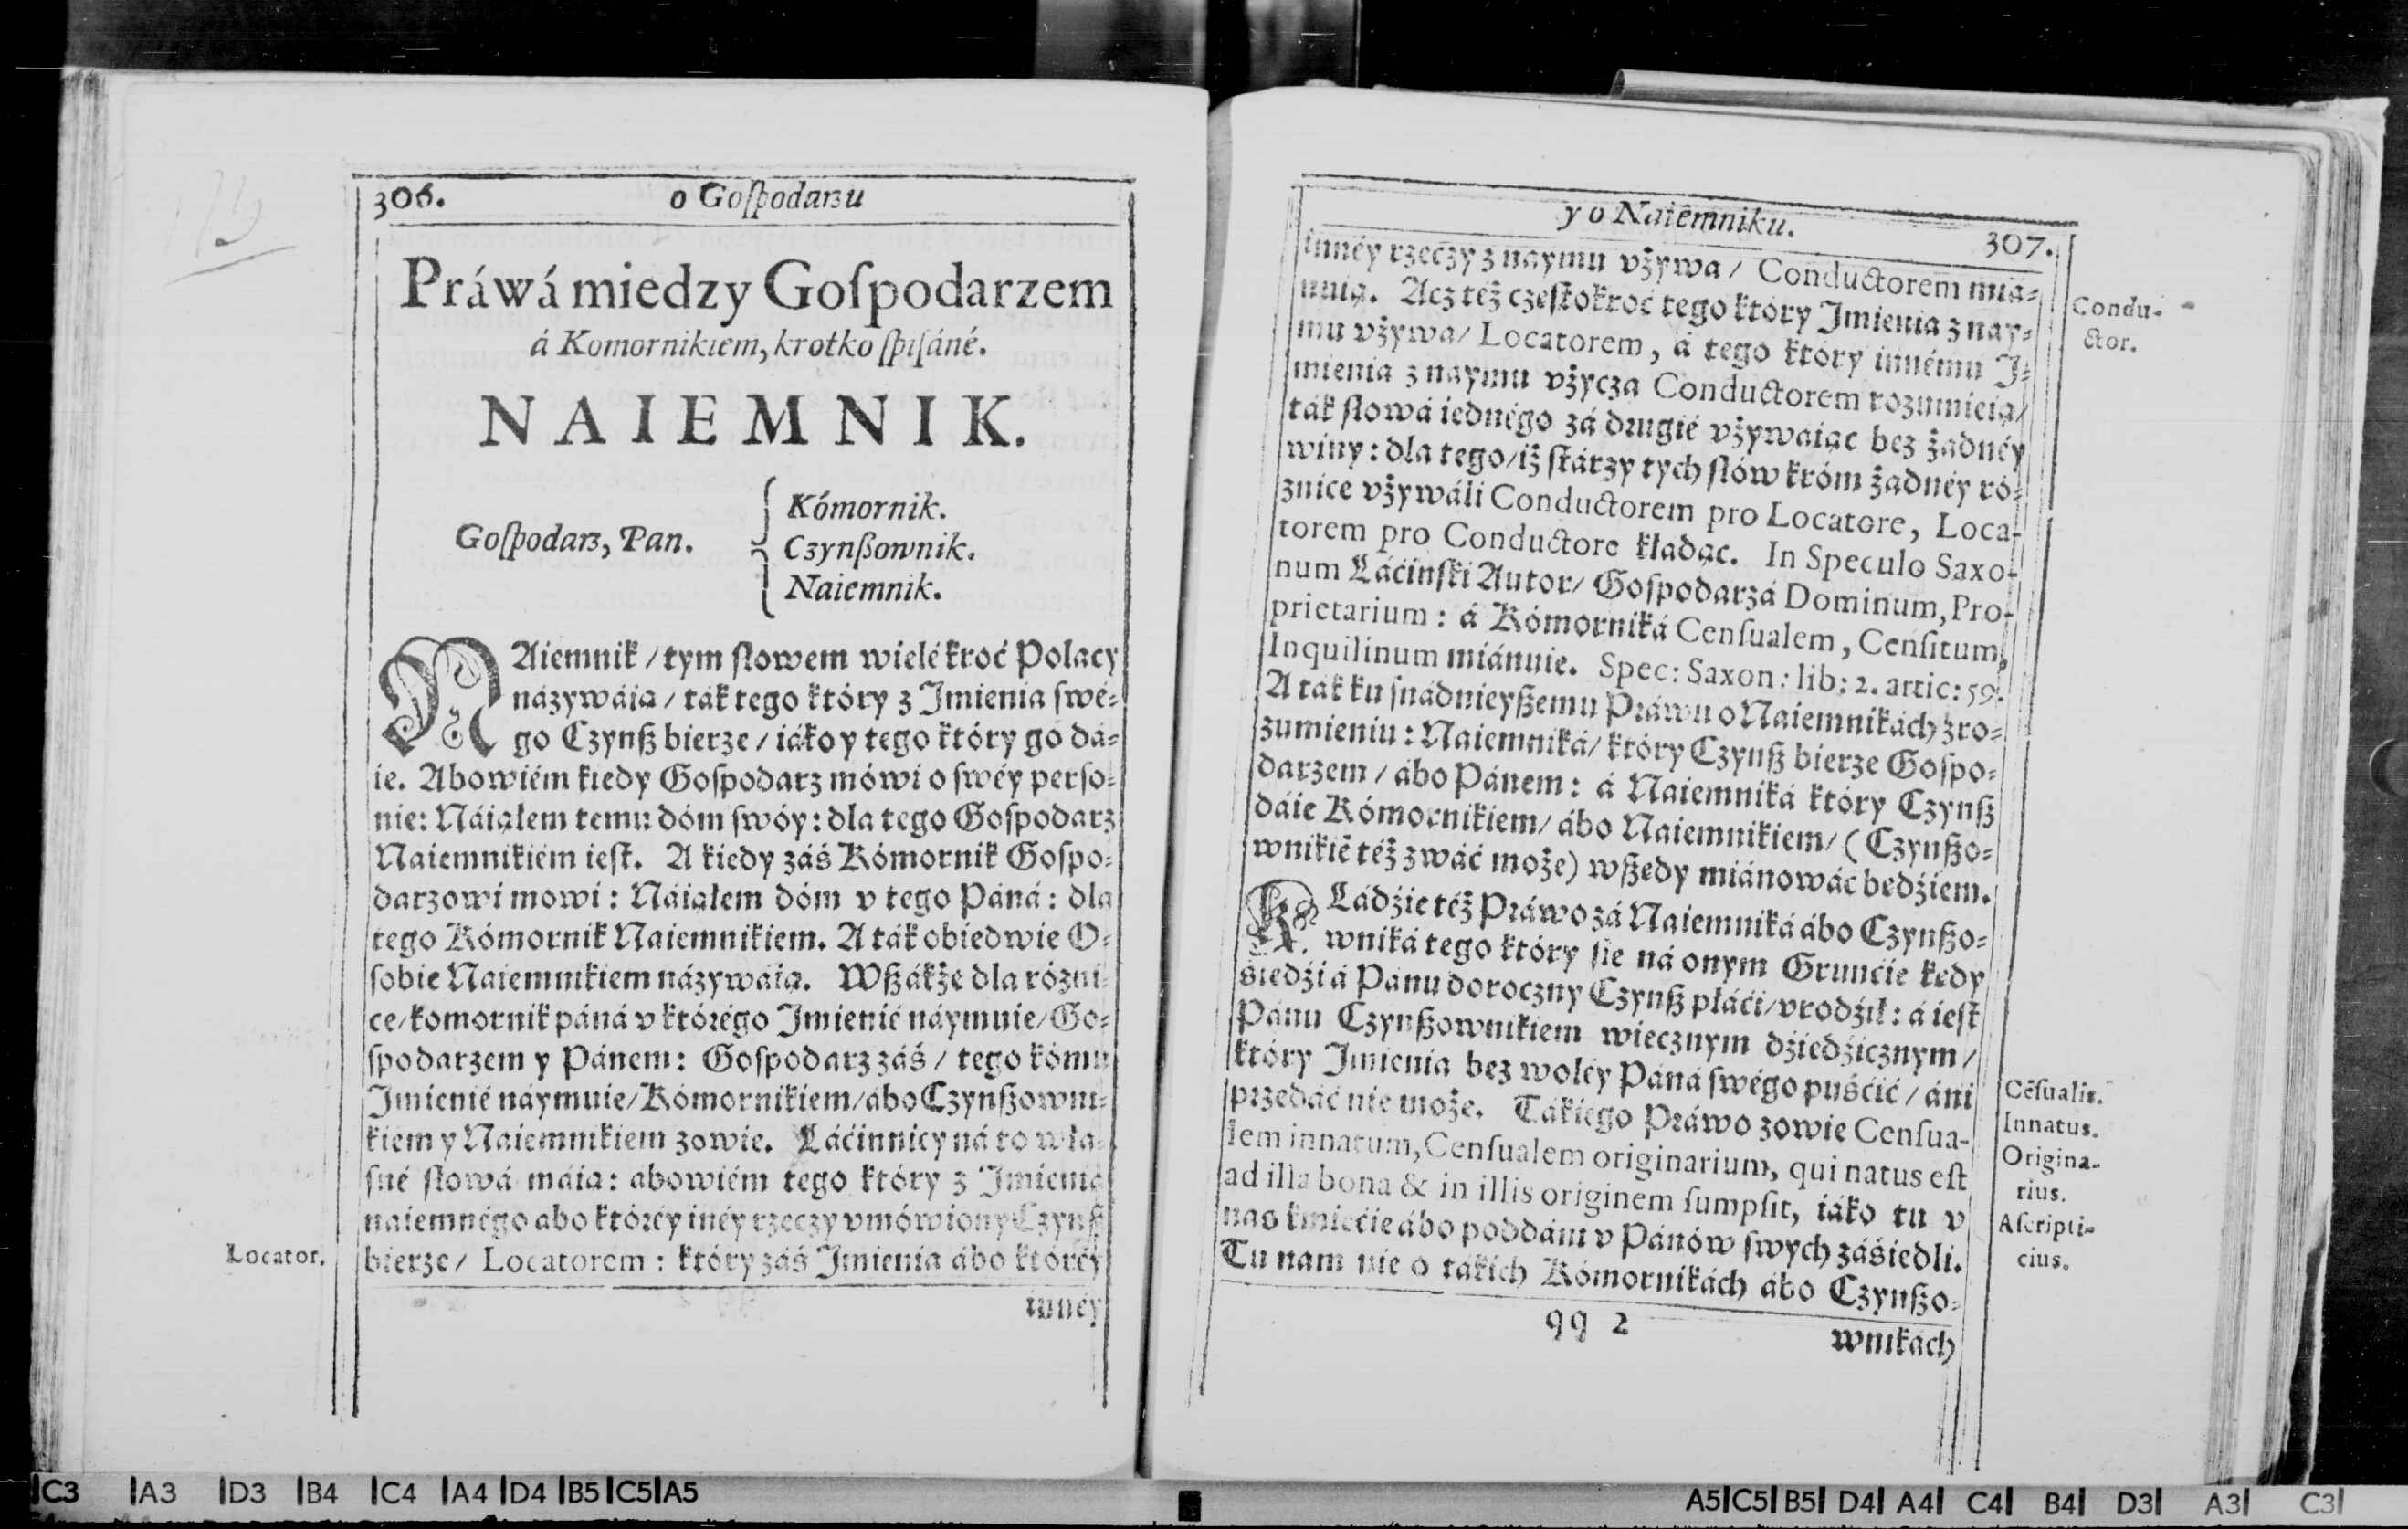 306.
o Goſpodarzu
Práwá miedzy Goſpodarzem
á Komornikiem, krotko ſpiſáné.
NAIEMNIK.
Goſpodarz, Pan.
Kómornik.
Czynßownik.
Naiemnik.
NAiemnik / tym ſłowem wielékroć Polacy
názywáią / ták tego który z Jmienia ſwé-
go Czynß bierze / iáko y tego który go dá-
ie. Abowiém kiedy Goſpodarz mówi o ſwéy perſo-
nie: Náiąłem temu dóm ſwóy: dla tego Goſpodarz
Naiemnikiém ieſt. A kiedy záś Kómornik Goſpo-
darzowi mowi: Náiąłem dóm v tego Páná: dla
tego Kómornik Naiemnikiem. A ták obiedwie O-
ſobie Naiemnikiem názywáią. Wßákże dla rózni-
ce / komornik páná v którégo Jmienié náymuie / Go-
ſpodarzem y Pánem: Goſpodarz záś / tego kómu
Jmienié náymuie / Kómornikiem / ábo Czynßowni-
kiem y Naiemnikiem zowie. Łáćinnicy ná to wła-
ſné ſłowá máią: abowiém tego który z Jmienia
naiemnégo abo któréy inéy rzeczy vmówiony Czynß
bierze / Locatorem: który záś Jmienia ábo któréy
Locator.
innéy
y o Naiémniku.
307.
innéy rzeczy z naymu vżywa / Conductorem mia-
nuią. Acz téż częſtokroć tego który Jmienia z nay-
mu vżywa / Locatorem, á tego który innému J-
mienia z naymu vżycza Conductorem rozumieią /
ták ſłowá iednégo zá drugié vżywaiąc bez żadnéy
winy: dla tego / iż ſtárzy tych ſłów króm żadnéy ró-
znice vżywáli Conductorem pro Locatore, Loca-
torem pro Conductore kładąc. In Speculo Saxo-
num Łáćinſki Autor / Goſpodarzá Dominum, Pro-
prietarium: á Kómorniká Cenſualem, Cenſitum,
Inquilinum miánuie. Spec: Saxon: lib: 2. artic: 59.
A ták ku ſnádnieyßemu Práwu o Naiemnikách zro-
zumieniu: Naiemniká / który Czynß bierze Goſpo-
darzem / ábo Pánem: á Naiemniká który Czynß
dáie Kómornikiem / ábo Naiemnikiem / (Czynßo-
wnikiē téż zwáć może) wßedy miánowác bedźiem.
KŁádźie téż Práwo zá Naiemniká ábo Czynßo-
wniká tego który ſie ná onym Grunćie kedy
śiedźi á Pánu doroczny Czynß płáći / vrodźił: á ieſt
Pánu Czynßownikiem wiecznym dźiedźicznym /
który Jmienia bez woléy Páná ſwégo puśćić / áni
przedáć nie może. Tákiego Práwo zowie Cenſua-
lem innatum, Cenſualem originarium, qui natus eſt
ad illa bona & in illis originem ſumpſit, iáko tu v
nas kmiećie ábo poddáni v Pánów ſwych záśiedli.
Tu nam nie o tákich Kómornikách ábo Czynßo-
Condu-
ctor.
Cēſualis.
Innatus.
Origina-
rius.
Aſcripti-
cius.
qq 2
wnikach
C3 A3 D3 B4 C4 A4 D4 B5 C5 A5
A5 C5 B5 D4 A4 C4 B4 D3 A3 C3